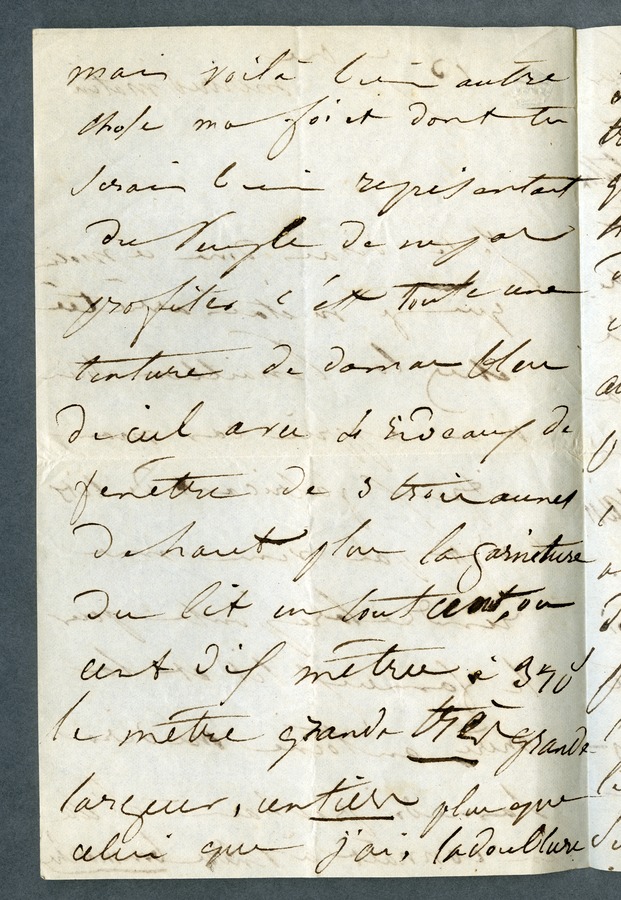 mais voilà bien autre
chose ma foi et dont tu
serais bien représentant
du Peuple de ne pas
profiter c'est toute une
tenture de damas bleu
de ciel avec 4 rideaux de
fenêtre de 3 trois aunes
de haut plus la garniture
du lit en tout cent, ou
cent dix mètres à
le mètre grande très grande
largeur, un tiers plus que
celui que j'ai, la doublure